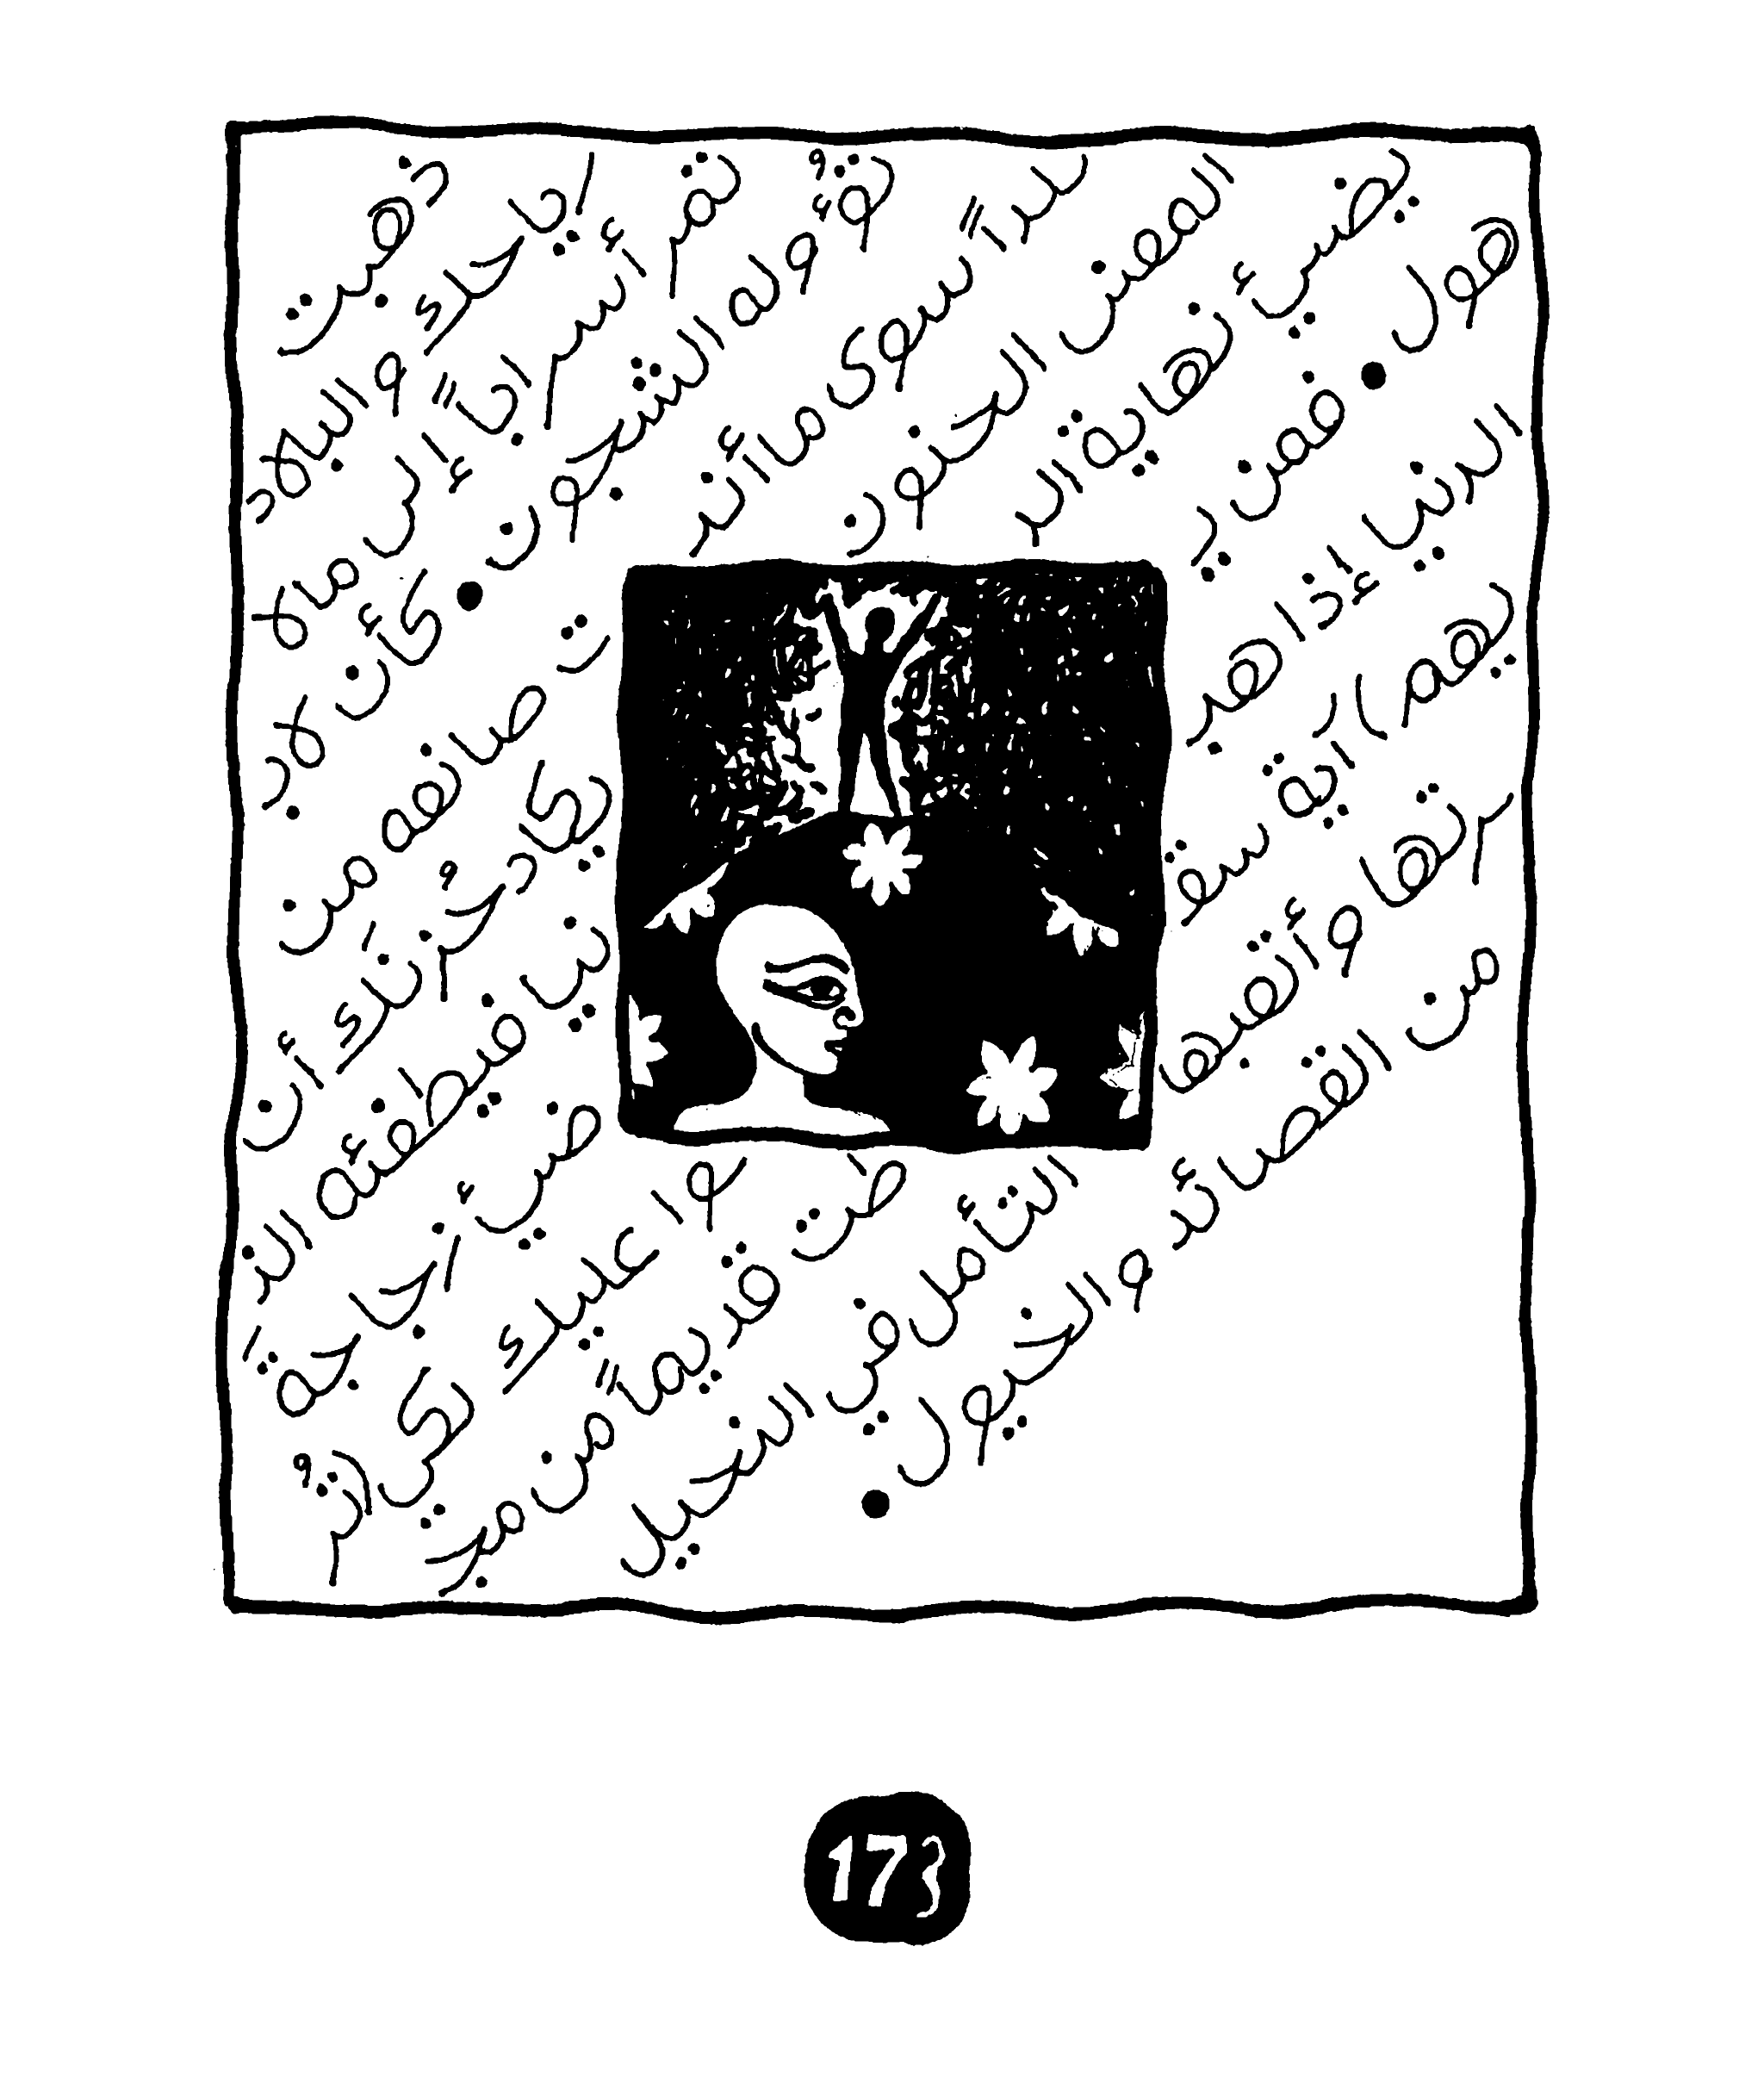 ذهبت
ايحك والبلاد
تمر أسراباً إلى ما لا
تقوله الشجون • كأن لا بـ
لداً سوى ما أنـ ـت صانعه من
المعنى الحنون يكاد حُزنك أن
يضيء نهاية الد نيا فيطفئه الذ
هول • فمن يـ ـضيء زجاجةَ
الدنيا إذا هبـ ـوا عليك لكي تُر
يهم رَاية سقـ ـطت قديماً من
وأنصبها التأمل في النخيل
من القصائد والخيول •
173